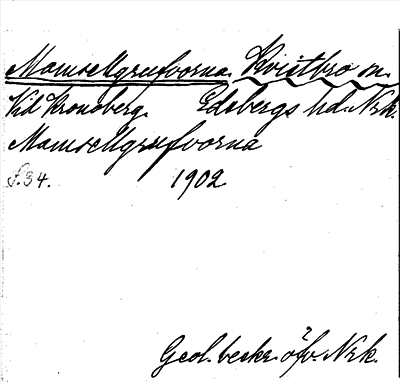 Mamsellgrufvorna. Kvistbro sn.
Vid Kroneberg. Edsbergs hd. Nrk.
Mamsellgrufvorna
s. 34. 1902
Geol. beskr. öfv. Nrk.